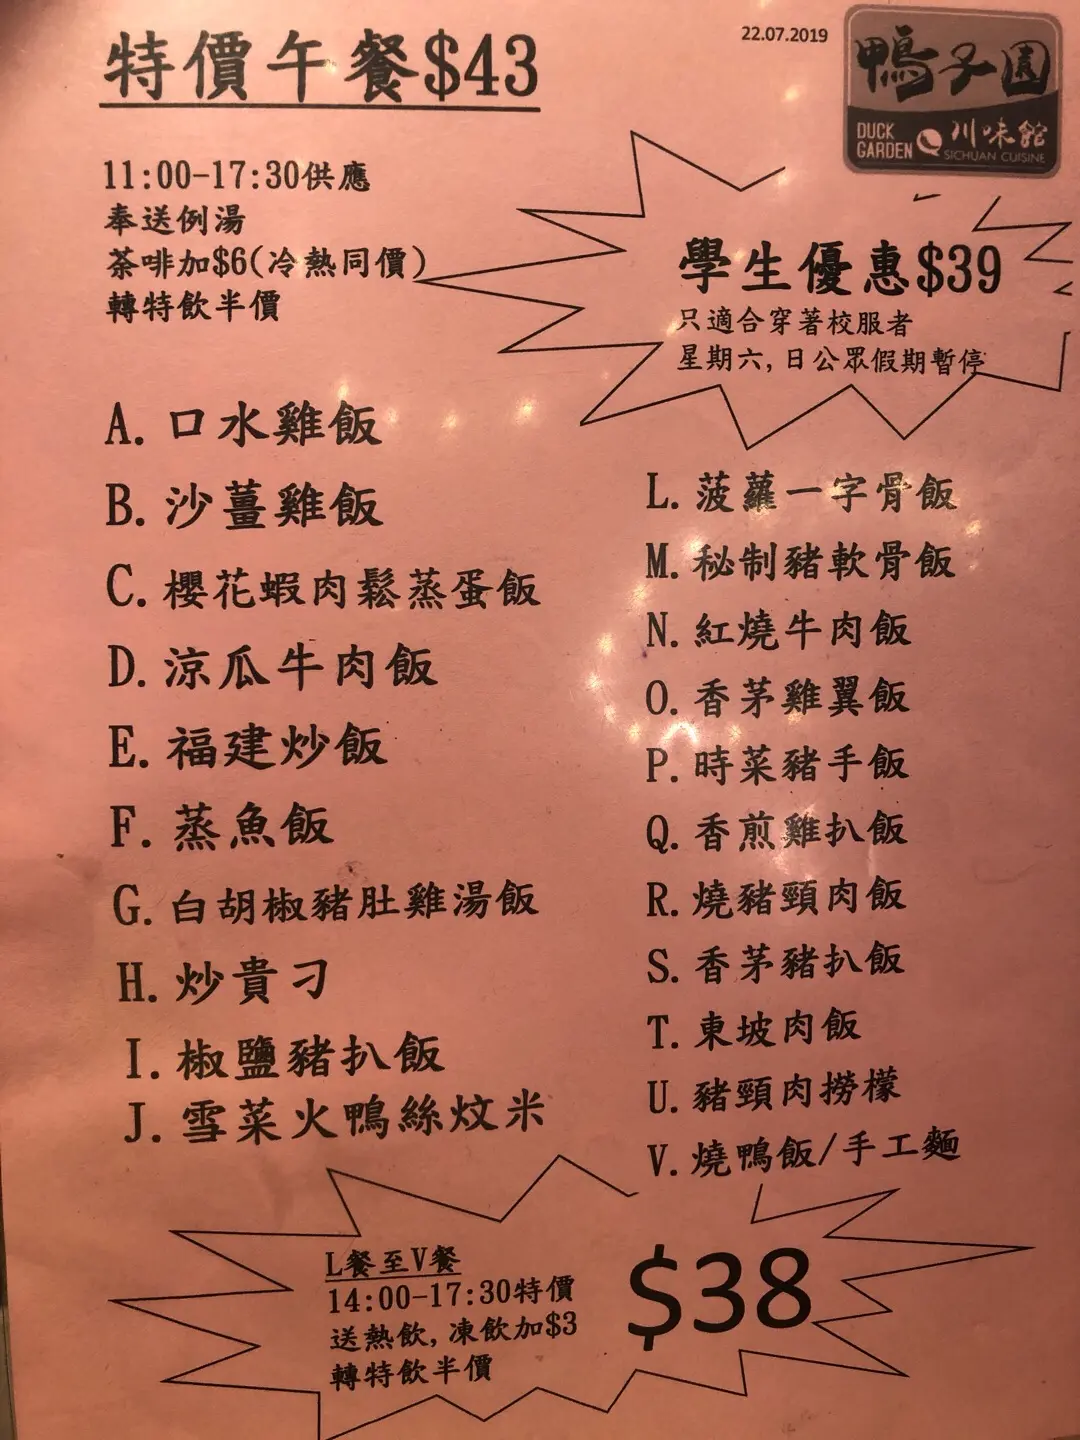 特價午餐$43
22.07.2019
鴨子園
DUCK GARDEN
川味館
SICHUAN CUISINE
11:00-17:30供應
奉送例湯
茶啡加$6(冷熱同價)
轉特飲半價
學生優惠$39
只適合穿著校服者
星期六,日公眾假期暫停
A.口水雞飯
B.沙薑雞飯
C.櫻花蝦肉鬆蒸蛋飯
D.涼瓜牛肉飯
E.福建炒飯
F.蒸魚飯
G.白胡椒豬肚雞湯飯
H.炒貴刁
I.椒鹽豬扒飯
J.雪菜火鴨絲炆米
L.菠蘿一字骨飯
M.秘制豬軟骨飯
N.紅燒牛肉飯
O.香茅雞翼飯
P.時菜豬手飯
Q.香煎雞扒飯
R.燒豬頸肉飯
S.香茅豬扒飯
T.東坡肉飯
U.豬頸肉撈檬
V.燒鴨飯/手工麵
L餐至V餐
14:00-17:30特價
送熱飲,凍飲加$3
轉特飲半價
$38